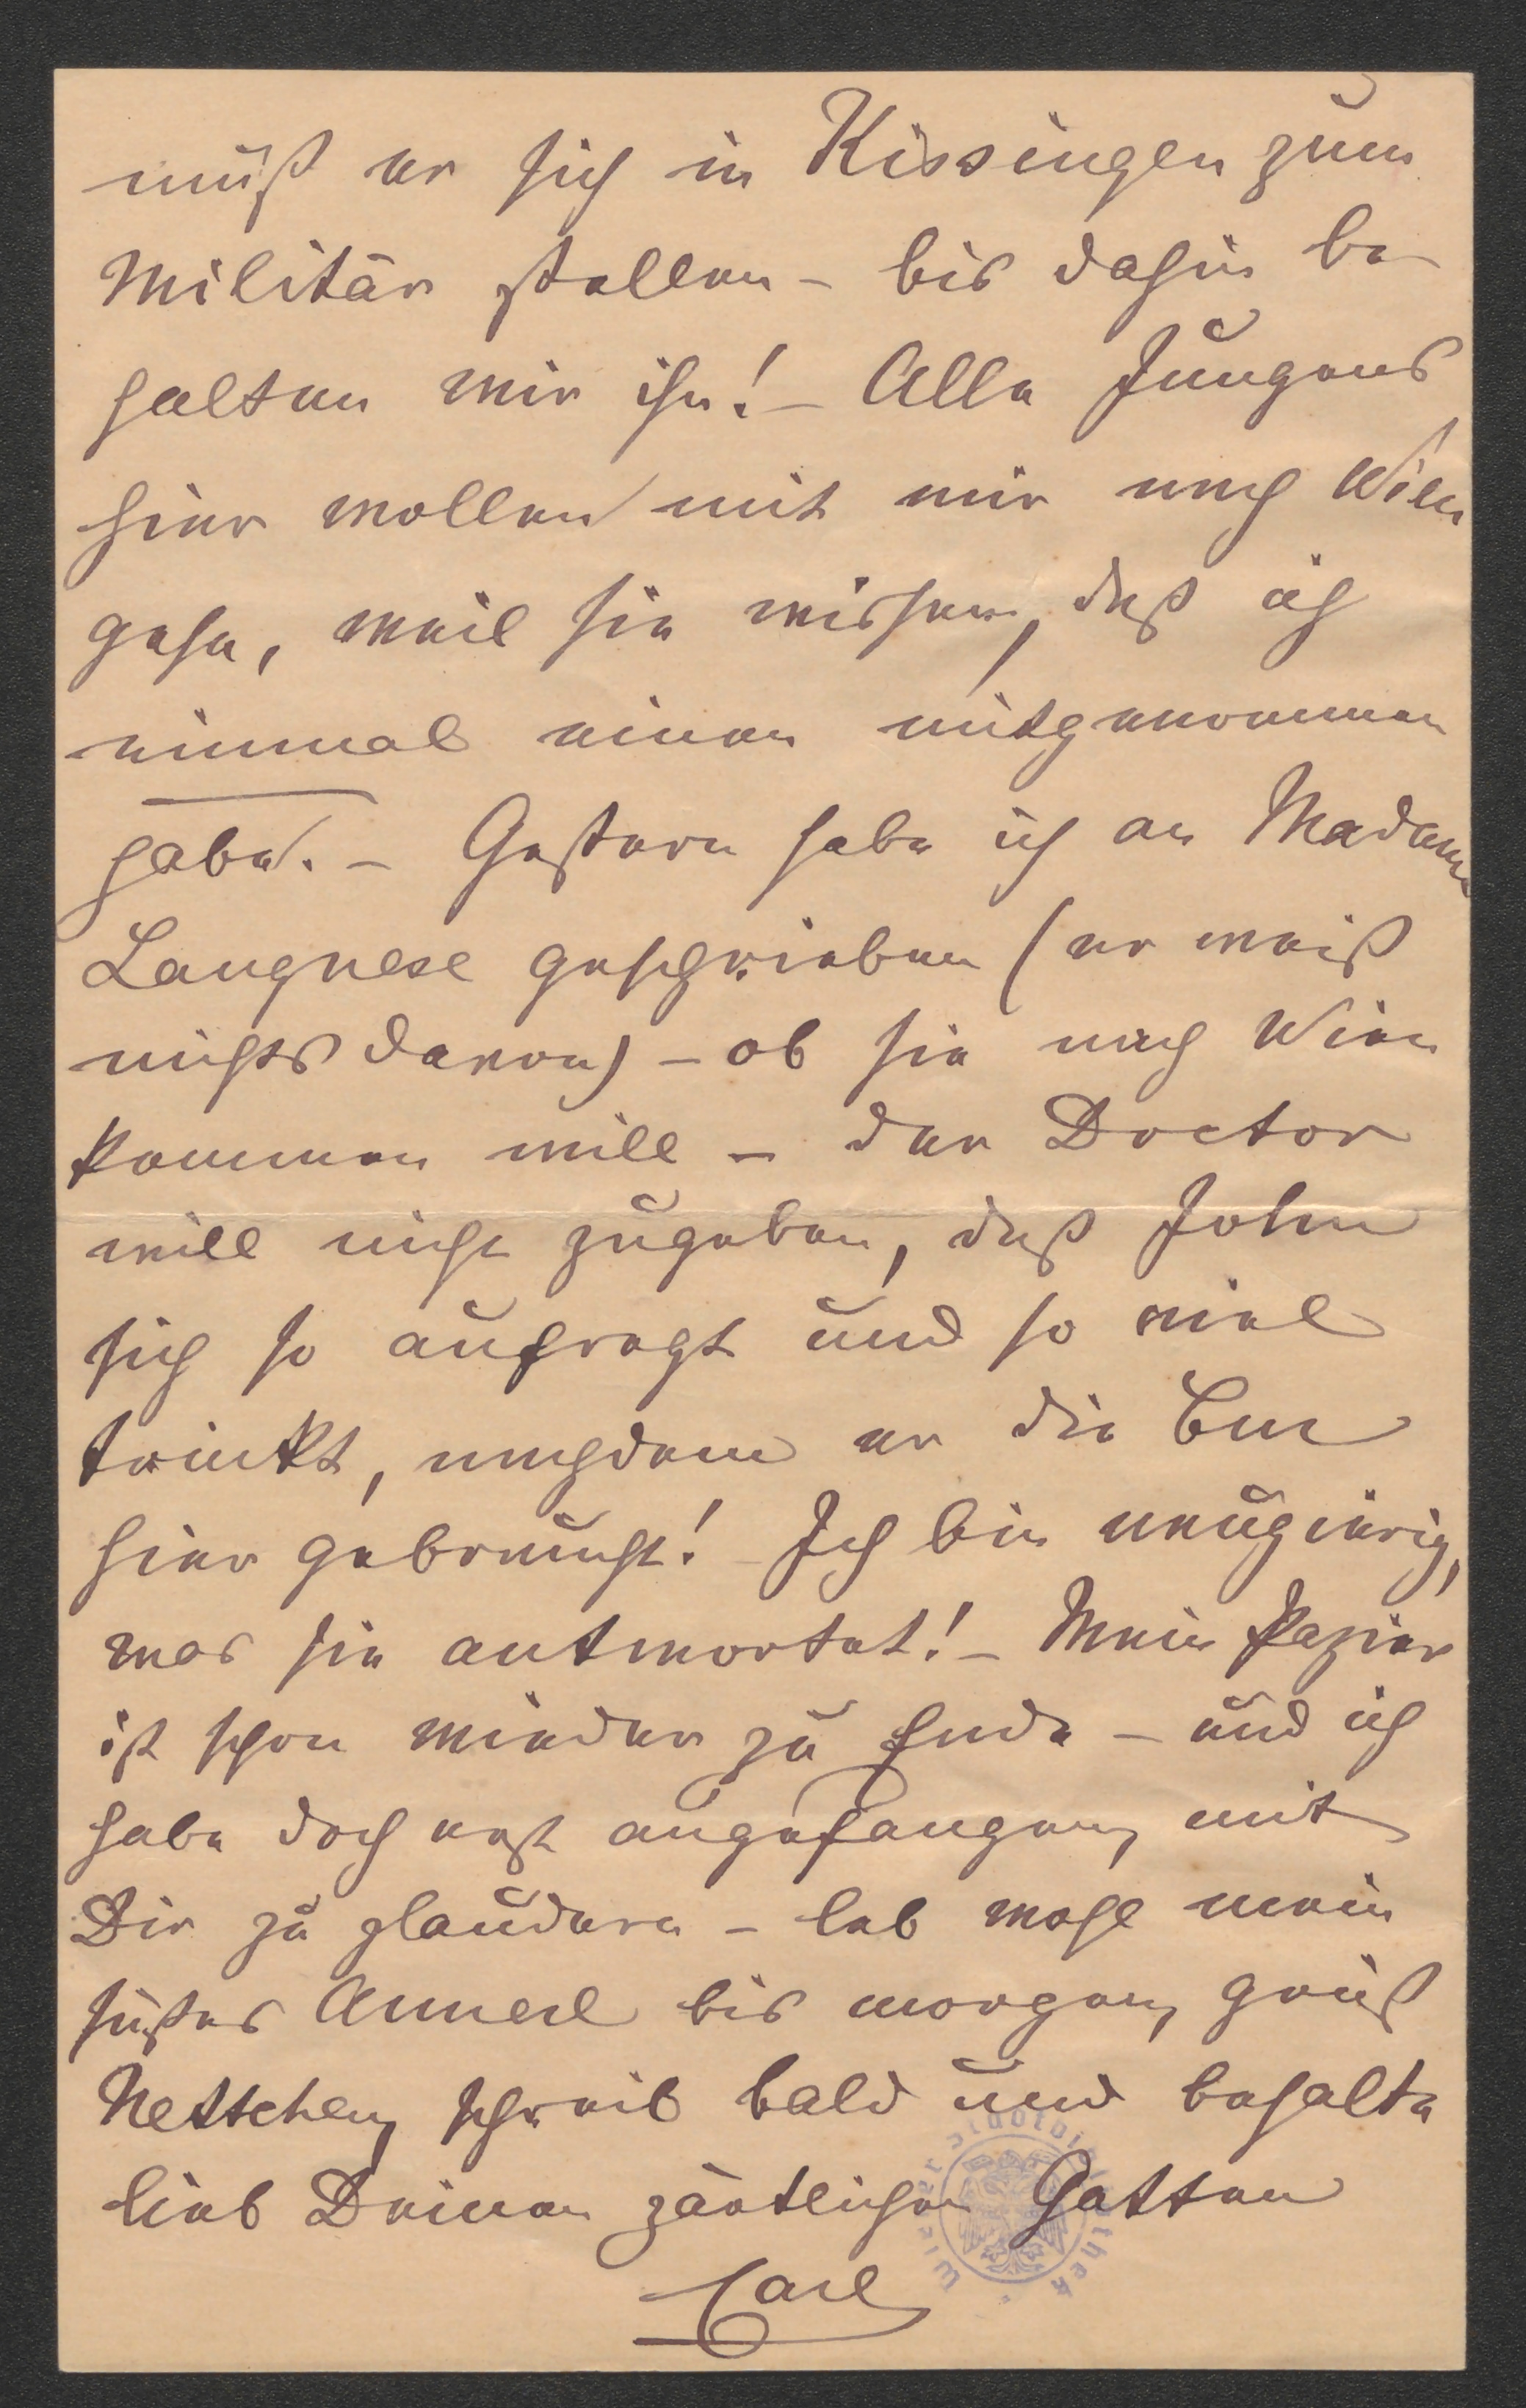 muß er sich in Kissingen zum
Militär stellen – bis dahin be-
halten wir ihn! – Alle Jungens
hier wollen mit mir nach Wien
gehn, weil sie wissen, daß ich
einmal einen mitgenommen
habe. – Gestern habe ich an Madame
Langnese geschrieben (er weiß
nichts davon) – ob sie nach Wien
kommen will – der Doctor
will nicht zugeben, daß John
sich so aufregt und so viel
trinkt, nachdem er die Cur
hier gebraucht! Ich bin neugierig,
was sie antwortet! – Mein Papier
ist schon wieder zu Ende – und ich
habe doch erst angefangen, mit
Dir zu plaudern – leb wohl mein
süßes Annerl bis morgen, grüß
Nettchen, schreib bald und behalte
lieb Deinen zärtlichen Gatten
Carl
Wiener Stadtbibliothek